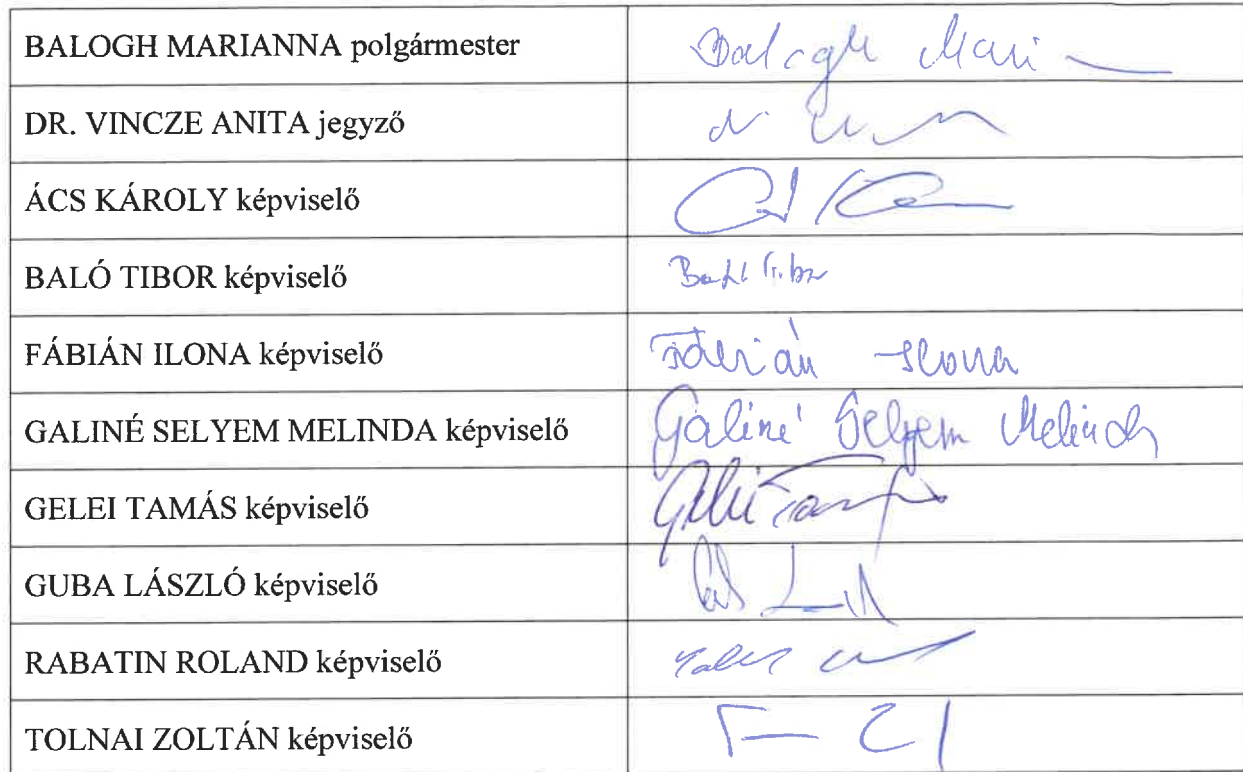 BALOGH MARIANNA polgármester Balogh Mari
DR. VINCZE ANITA jegyző
ÁCS KÁROLY képviselő
BALÓ TIBOR képviselő Baló Tibor
FÁBIÁN ILONA képviselő Fábián Ilona
GALINÉ SELYEM MELINDA képviselő Galiné Selyem Melinda
GELEI TAMÁS képviselő
GUBA LÁSZLÓ képviselő
RABATIN ROLAND képviselő
TOLNAI ZOLTÁN képviselő